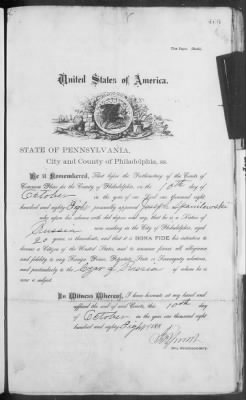 United States of America.
STATE OF PENNSYLVANIA,
City and County of Philadelphia, ss.
Be it Remembered, That before the Prothonotary of the Courts of
Common Pleas for the County of Philadelphia, on the 10th day of
October in the year of our Lord one thousand eight
hundred and eighty Eight personally appeared Joseph
who upon his solemn oath did depose and say, that he is a Native of
Russia now residing in the City of Philadelphia, aged
23 years or thereabouts, and that it is BONA FIDE, his intention to
become a Citizen of the United States, and to renounce forever all allegiance
and fidelity to any Foreign Prince, Potentate, State or Sovereignty whatsoever,
and particularly to the Czar of Russia of whom he is
now a subject.
In Witness Whereof, I have hereunto set my hand and
affixed the seal of said Courts, this 10th day
of October in the year one thousand eight
hundred and eighty Eight 188
Pro. Prothonotary.